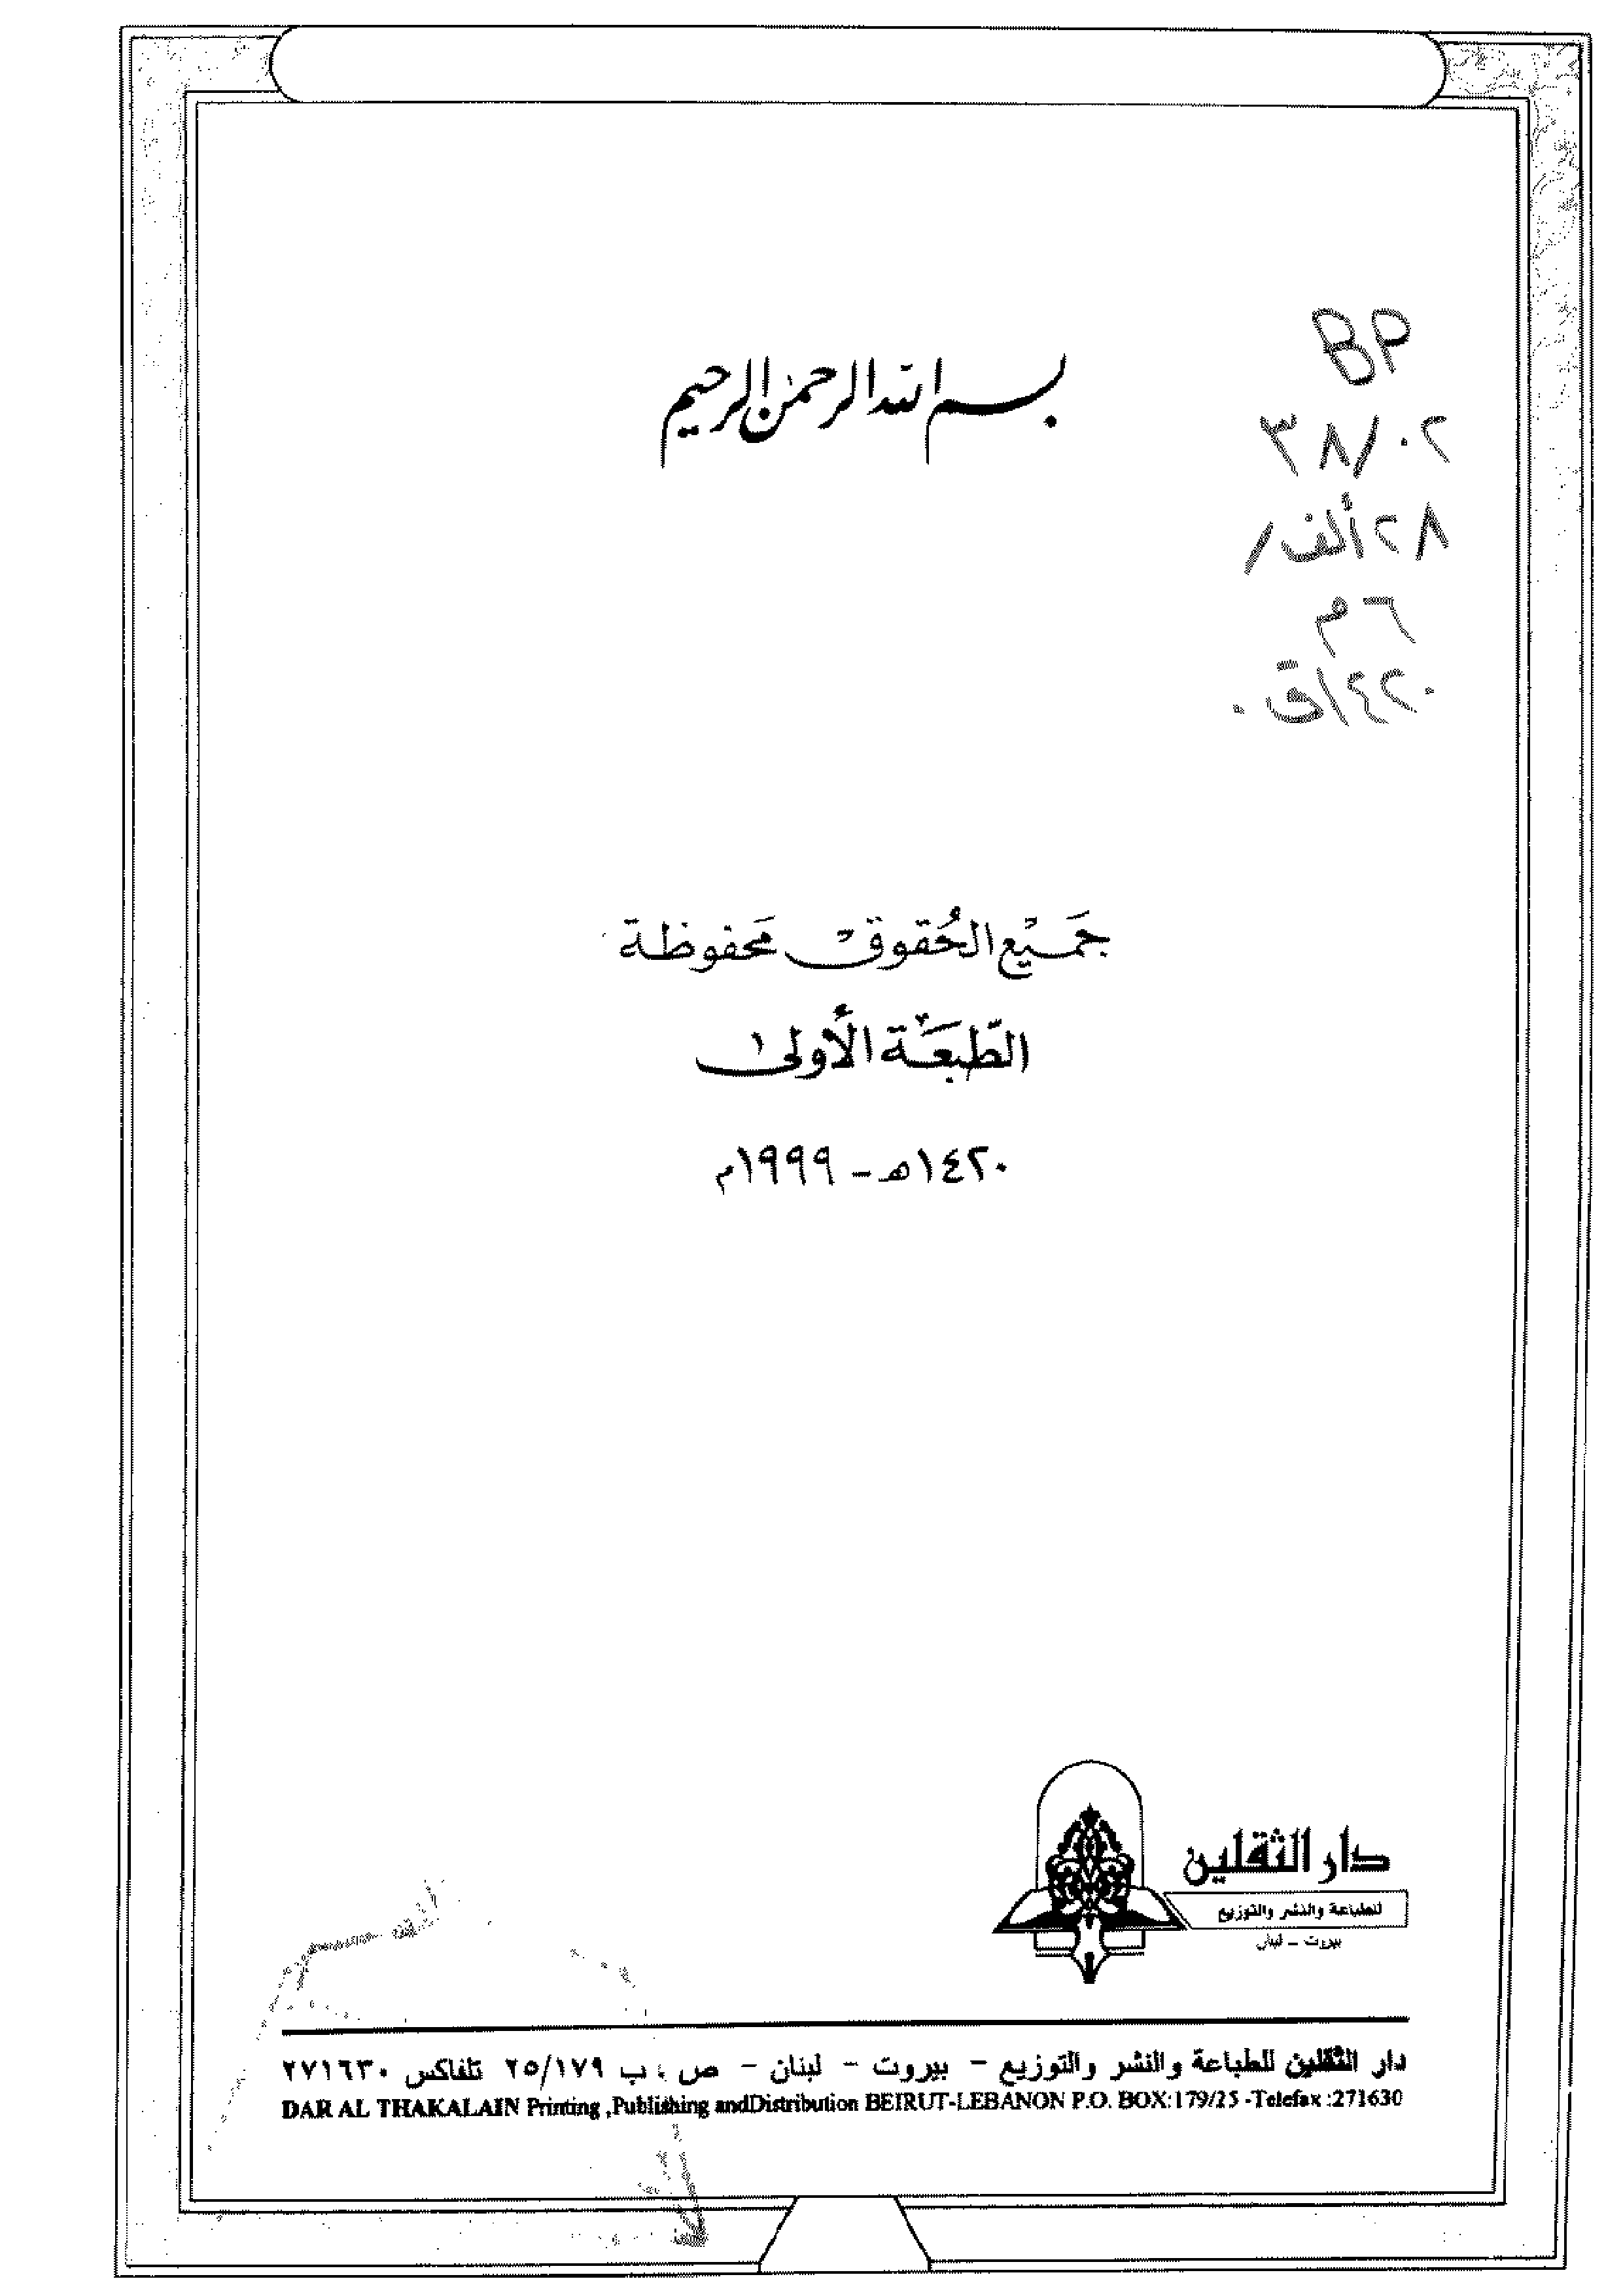 بسم الله الرحمن الرحيم
BP
٣٨/٠٢
٢٨ألف/
٦م
٤٢٠ق/
جَميْع الحُقوق محَفوظة
الطّبعَة الأولى
١٤٢٠هـ - ١٩٩٩م
دار الثقلين
للطباعة والنشر والتوزيع
بيروت - لبنان
دار الثقلين للطباعة والنشر والتوزيع - بيروت - لبنان - ص . ب ٢٥/١٧٩ تلفاكس ٢٧١٦٣٠
DAR AL THAKALAIN Printing ,Publishing andDistribution BEIRUT-LEBANON P.O. BOX:179/25 -Telefax :271630